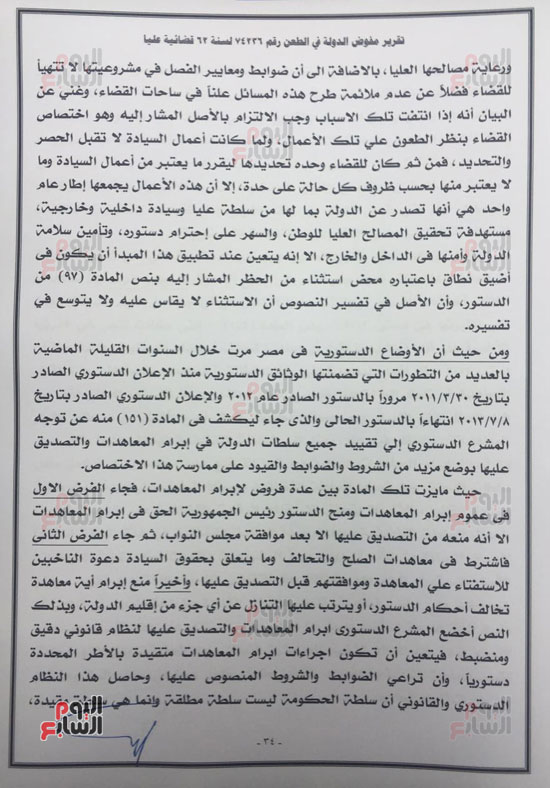 تقرير مفوض الدولة في الطعن رقم ٧٤٢٣٦ لسنة ٦٢ قضائية عليا
ورعاية مصالحها العليا، بالاضافة الى أن ضوابط ومعايير الفصل في مشروعيتها لا تتهيأ
للقضاء فضلاً عن عدم ملائمة طرح هذه المسائل علناً في ساحات القضاء، وغني عن
البيان أنه إذا انتفت تلك الاسباب وجب الالتزام بالأصل المشار إليه وهو اختصاص
القضاء بنظر الطعون علي تلك الأعمال، ولما كانت أعمال السيادة لا تقبل الحصر
والتحديد، فمن ثم كان للقضاء وحده تحديدها ليقرر ما يعتبر من أعمال السيادة وما
لا يعتبر منها بحسب ظروف كل حالة على حدة، إلا أن هذه الأعمال يجمعها إطار عام
واحد هي أنها تصدر عن الدولة بما لها من سلطة عليا وسيادة داخلية وخارجية،
مستهدفة تحقيق المصالح العليا للوطن، والسهر على إحترام دستوره، وتأمين سلامة
الدولة وأمنها فى الداخل والخارج، الا إنه يتعين عند تطبيق هذا المبدأ أن يكون فى
أضيق نطاق باعتباره محض استثناء من الحظر المشار إليه بنص المادة (٩٧) من
الدستور، وأن الأصل في تفسير النصوص أن الاستثناء لا يقاس عليه ولا يتوسع في
تفسيره.
ومن حيث أن الأوضاع الدستورية فى مصر مرت خلال السنوات القليلة الماضية
بالعديد من التطورات التي تضمنتها الوثائق الدستورية منذ الإعلان الدستوري الصادر
بتاريخ ٢٠١١/٣/٣٠ مروراً بالدستور الصادر عام ٢٠١٢ والإعلان الدستوري الصادر بتاريخ
٢٠١٣/٧/٨ انتهاءاً بالدستور الحالى والذى جاء ليكشف فى المادة (١٥١) منه عن توجه
المشرع الدستوري إلي تقييد جميع سلطات الدولة في إبرام المعاهدات والتصديق
عليها بوضع مزيد من الشروط والضوابط والقيود على ممارسة هذا الاختصاص.
حيث مايزت تلك المادة بين عدة فروض لإبرام المعاهدات، فجاء الفرض الاول
فى عموم إبرام المعاهدات ومنح الدستور رئيس الجمهورية الحق فى إبرام المعاهدات
الا أنه منعه من التصديق عليها الا بعد موافقة مجلس النواب، ثم جاء الفرض الثانى
فاشترط فى معاهدات الصلح والتحالف وما يتعلق بحقوق السيادة دعوة الناخبين
للاستفتاء علي المعاهدة وموافقتهم قبل التصديق عليها، وأخيراً منع إبرام أية معاهدة
تخالف أحكام الدستور، أو يترتب عليها التنازل عن أي جزء من إقليم الدولة، وبذلك
النص أخضع المشرع الدستورى ابرام المعاهدات والتصديق عليها لنظام قانوني دقيق
ومنضبط، فيتعين أن تكون اجراءات ابرام المعاهدات متقيدة بالأطر المحددة
دستورياً، وأن تراعي الضوابط والشروط المنصوص عليها، وحاصل هذا النظام
الدستوري والقانوني أن سلطة الحكومة ليست سلطة مطلقة وإنما هي سلطة مقيدة،
- ٣٤ -
اليوم السابع